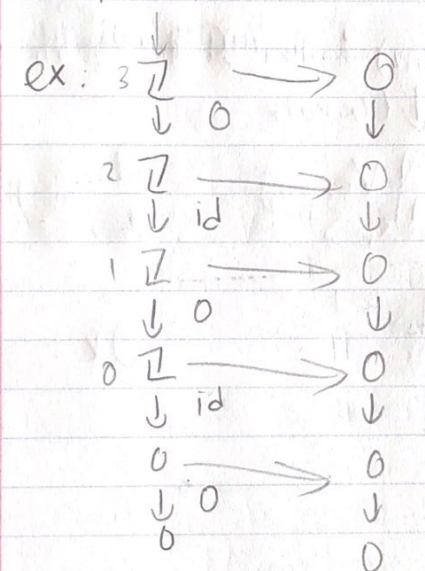 ↓
ex: 3 ℤ → 0
↓ 0 ↓
2 ℤ → 0
↓ id ↓
1 ℤ → 0
↓ 0 ↓
0 ℤ → 0
↓ id ↓
0 → 0
↓ 0 ↓
0 0